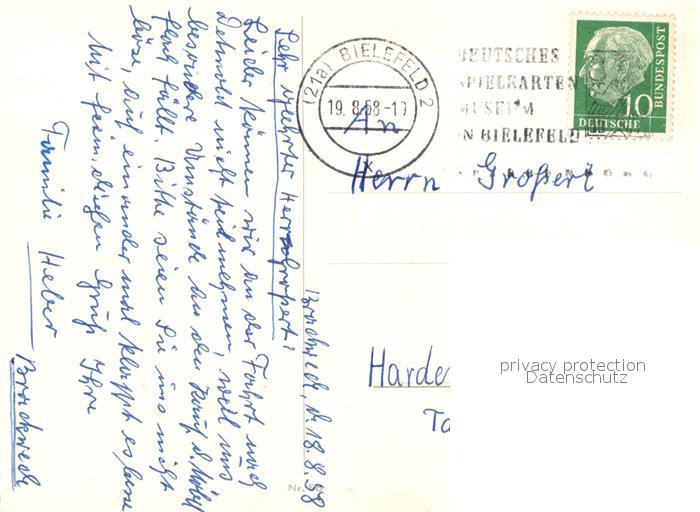 Brackwede, d. 18.8.58
Sehr geehrter Herr Großert!
Leider können wir an der Fahrt nach
Detmold nicht teilnehmen, weil uns
besondere Umstände an den
flach fällt. Bitte seien Sie uns nicht
böse, auf ein andermal klappt es besser
Mit freundlichem Gruß Ihre
Familie Heber
Brackwede
(21a) BIELEFELD 2
19. 8. 58 - 19
x
DEUTSCHES
SPIELKARTEN
MUSEUM
IN BIELEFELD
10
DEUTSCHE
BUNDESPOST
An
Herrn Großert
Harde
Ta
privacy protection
Datenschutz
Nr.